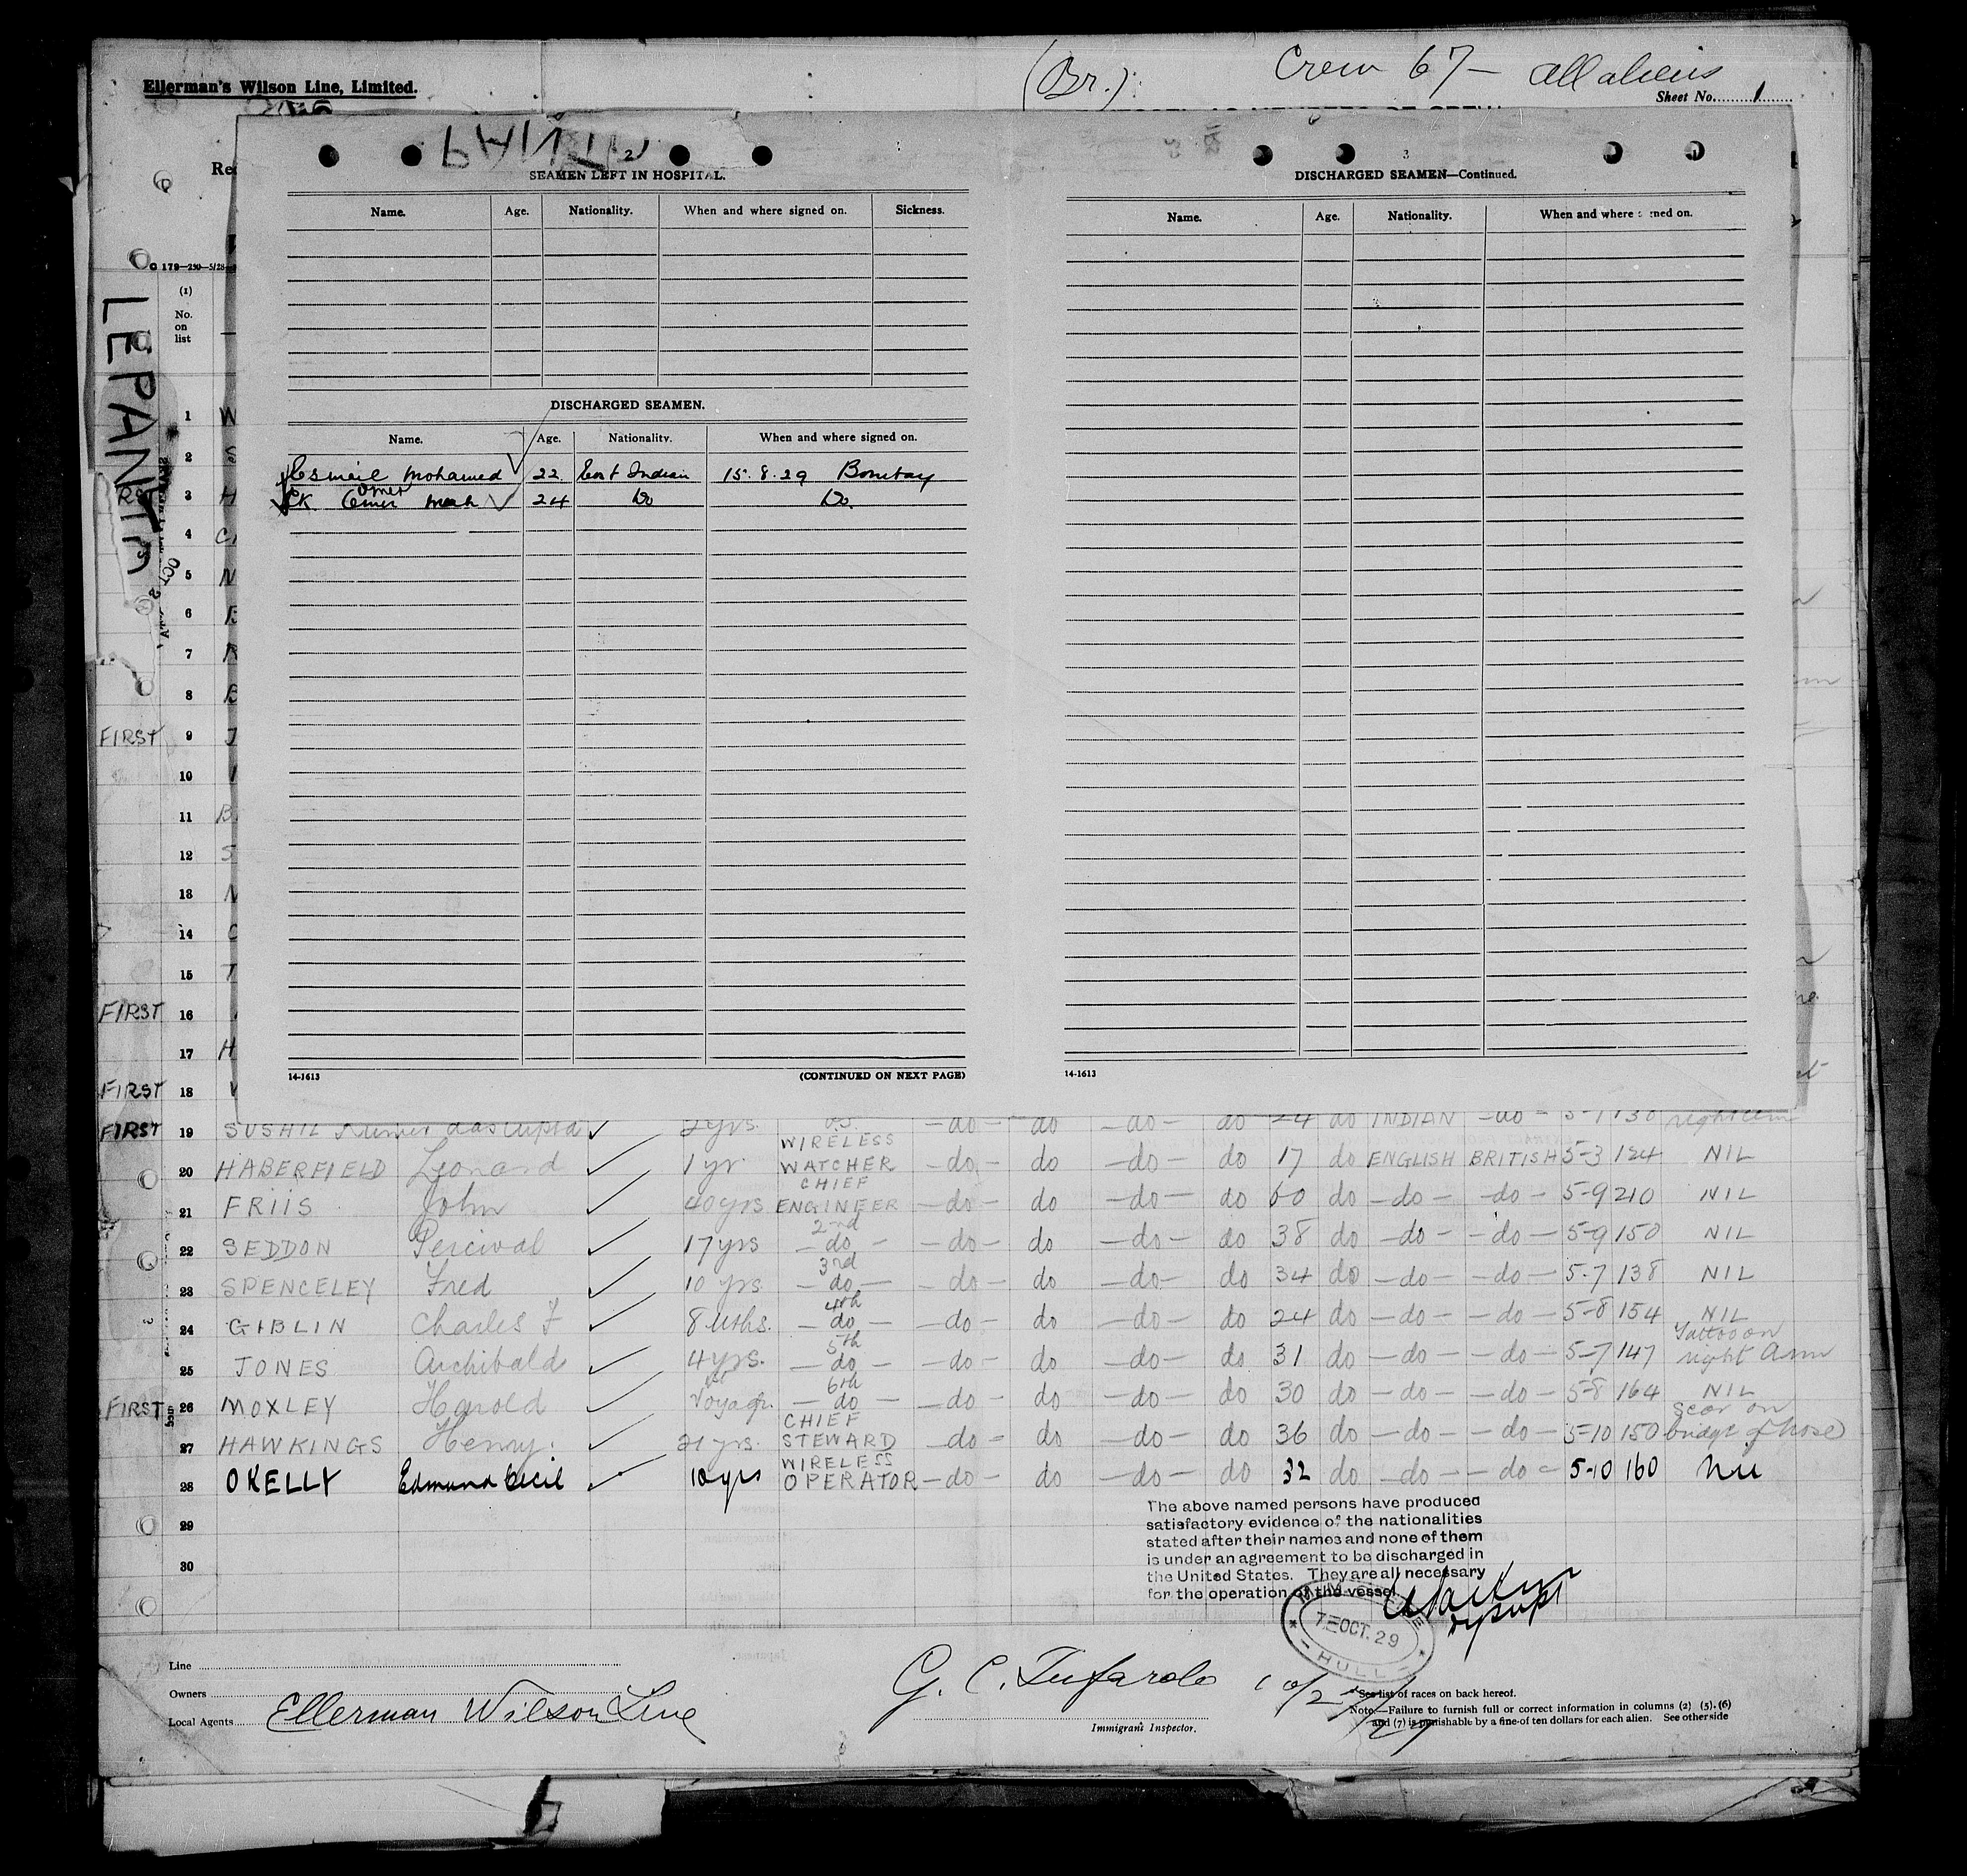 Ellerman's Wilson Line, Limited.
(Br.) Crew 67 - all aliens
Sheet No. 1
2
SEAMEN LEFT IN HOSPITAL.
Name. Age. Nationality. When and where signed on. Sickness.
DISCHARGED SEAMEN.
Name. Age. Nationality. When and where signed on.
Esmail Mohamed 22 East Indian 15.8.29 Bombay
24 Do Do.
14-1613 (CONTINUED ON NEXT PAGE)
3
DISCHARGED SEAMEN—Continued.
Name. Age. Nationality. When and where signed on.
14-1613
G 179—250—5/28
(1)
No.
on
list
LEPANTO
1 W
2 S
3 H
4
5 N
6
7
8 B
FIRST 9 J
10
11 B
12 S
13
14
15 T
FIRST 16
17 H
FIRST 18
FIRST 19 SUSHIL Kumar dasgupta 2yrs. —do— do —do— do 24 do INDIAN —do— 5-7 130 right arm
20 HABERFIELD Leonard 1 yr. WIRELESS WATCHER —do— do —do— do 17 do ENGLISH BRITISH 5-3 124 NIL
21 FRIIS John 40yrs CHIEF ENGINEER —do— do —do— do 60 do —do— —do— 5-9 210 NIL
22 SEDDON Percival 17yrs 2nd —do— —do— do —do— do 38 do —do— —do— 5-9 150 NIL
23 SPENCELEY Fred 10 yrs 3rd —do— —do— do —do— do 34 do —do— —do— 5-7 138 NIL
24 GIBLIN Charles F 8 mths. 4th —do— —do— do —do— do 24 do —do— —do— 5-8 154 NIL
25 JONES Archibald 4yrs. 5th —do— —do— do —do— do 31 do —do— —do— 5-7 147 Tattoo on right Arm
FIRST 26 MOXLEY Harold 1st Voyage. 6th —do— —do— do —do— do 30 do —do— —do— 5-8 164 NIL
27 HAWKINGS Henry. 21 yrs. CHIEF STEWARD —do— do —do— do 36 do —do— —do— 5-10 150 scar on bridge of nose
28 OKELLY Edmund Cecil 10yrs WIRELESS OPERATOR —do— do —do— do 32 do —do— —do— 5-10 160 Nil
29
30
The above named persons have produced
satisfactory evidence of the nationalities
stated after their names and none of them
is under an agreement to be discharged in
the United States. They are all necessary
for the operation of the vessel.
7=OCT.29
HULL
Line
Owners
Local Agents Ellerman Wilson Line
G. C. Tufarolo 10/27/29
Immigrant Inspector.
See list of races on back hereof.
Note.—Failure to furnish full or correct information in columns (2) (5), (6)
and (7) is punishable by a fine of ten dollars for each alien. See other side